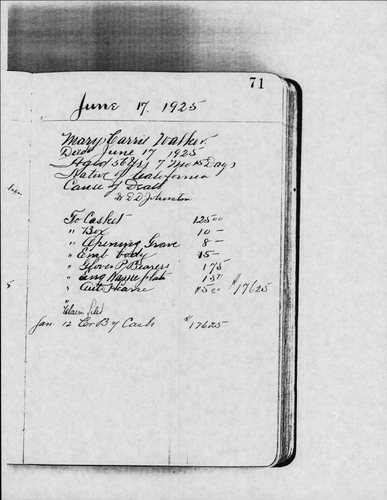 71
June 17. 1925
Mary Carrie Walker.
Died June 17 1925
Aged 56 Yrs 7 Mo 15 Days
Native of California
Cause of Death
W D D Johnston
To Casket 125 00
" Box 10 -
" Opening Grave 8 -
" Emb body 15 -
" Gloves P. Bearers 1 75
" Eng Name plate 1 50
" Auto Hearse 15 00 $176 25
" Claim filed
Jan 12 Cr By Cash $176 25